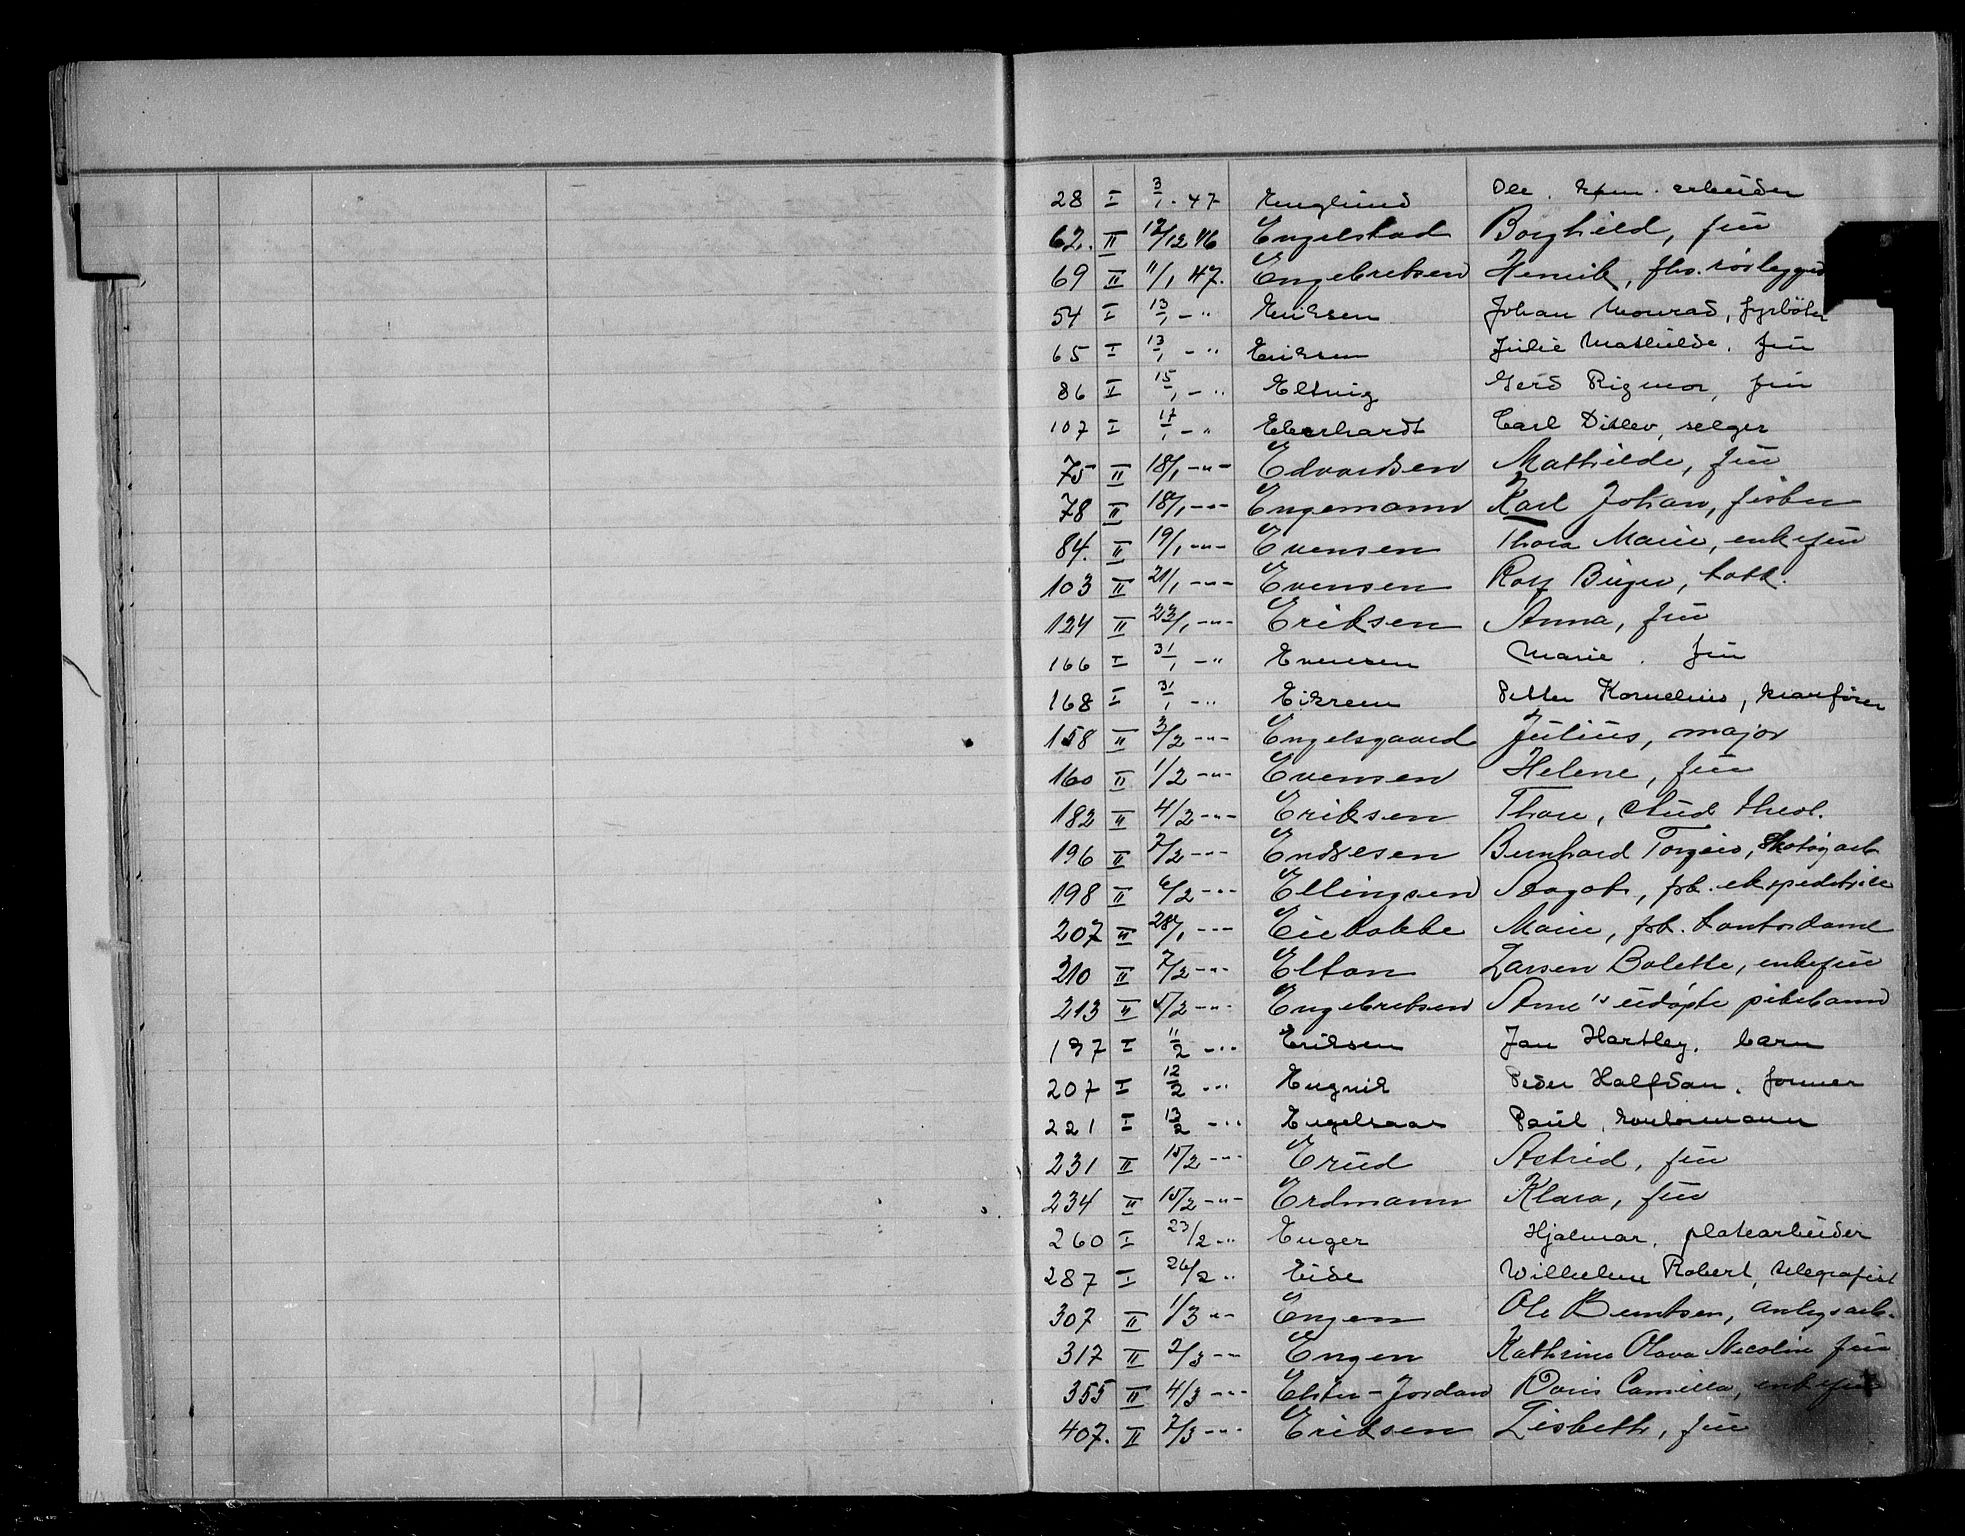 28 I 3/1 - 47 Englund Ole. kom. arbeider
62. II 12/12 46 Engelstad Borghild, fru
69 II 11/1 47. Engebretsen Henrik, fhv. rørlegger
54 I 13/1 - " Eriksen Johan Monrad, fyrbøter
65 I 13/1 - " Eriksen Julie Mathilde, fru
86 I 15/1 - " Elsvig Gerd Rigmor, fru
107 I 17/1 - " Eberhardt Carl Ditlev, selger
75 II 18/1 -"- Edvardsen Mathilde, fru
78 II 18/1 -"- Engemann Karl Johan, fisker
84. II 19/1 -"- Evensen Thora Marie, enkefru
103 II 21/1 -"- Evensen Rolf Birger
124 II 22/1 -"- Eriksen Anna, fru
166 I 31/1 - " Evensen Marie. fru
168 I 31/1 - " Eikrem Petter Kornelius, kranfører
158 II 3/2 -"- Engelsgaard Julius, major
160 II 1/2 -"- Evensen Helene, fru
182 II 4/2 -"- Eriksen Thore, stud theol.
196 II 7/2 -"- Endresen Bernhard Torgeir, Skotøyarb
198 II 6/2 -"- Ellingsen Aagot, frk. ekspeditrise
207 II 28/1 -"- Marie, frk. kontordame
210 II 7/2 -"- Elton Larsen Bolette, enkefru
213 II 5/2 -"- Engebretsen Arne's udøpte pikebarn
197 I 11/2 - " Eriksen Jan Hartley, barn
207 I 12/2 - " Engvik Peder Halfdan, former
221 I 13/2 - " Engelsaas Paul, kontormann
231 II 15/2 -"- Erud Astrid, fru
234 II 15/2 -"- Erdmann Klara, fru
260 I 23/2 - " Enger Hjalmar, platearbeider
287 I 26/2 " Eide Wilhelm Robert, telegrafist
307 II 1/3 "- Engen Ole Berntsen, anlegsarb.
317 II 2/3 -"- Engen Kathrine Olava Nicoline fru
355 II 4/3 -"- Elster-Jordan Doris Camilla, enkefru
407. II 7/3 -"- Eriksen Lisbeth, fru